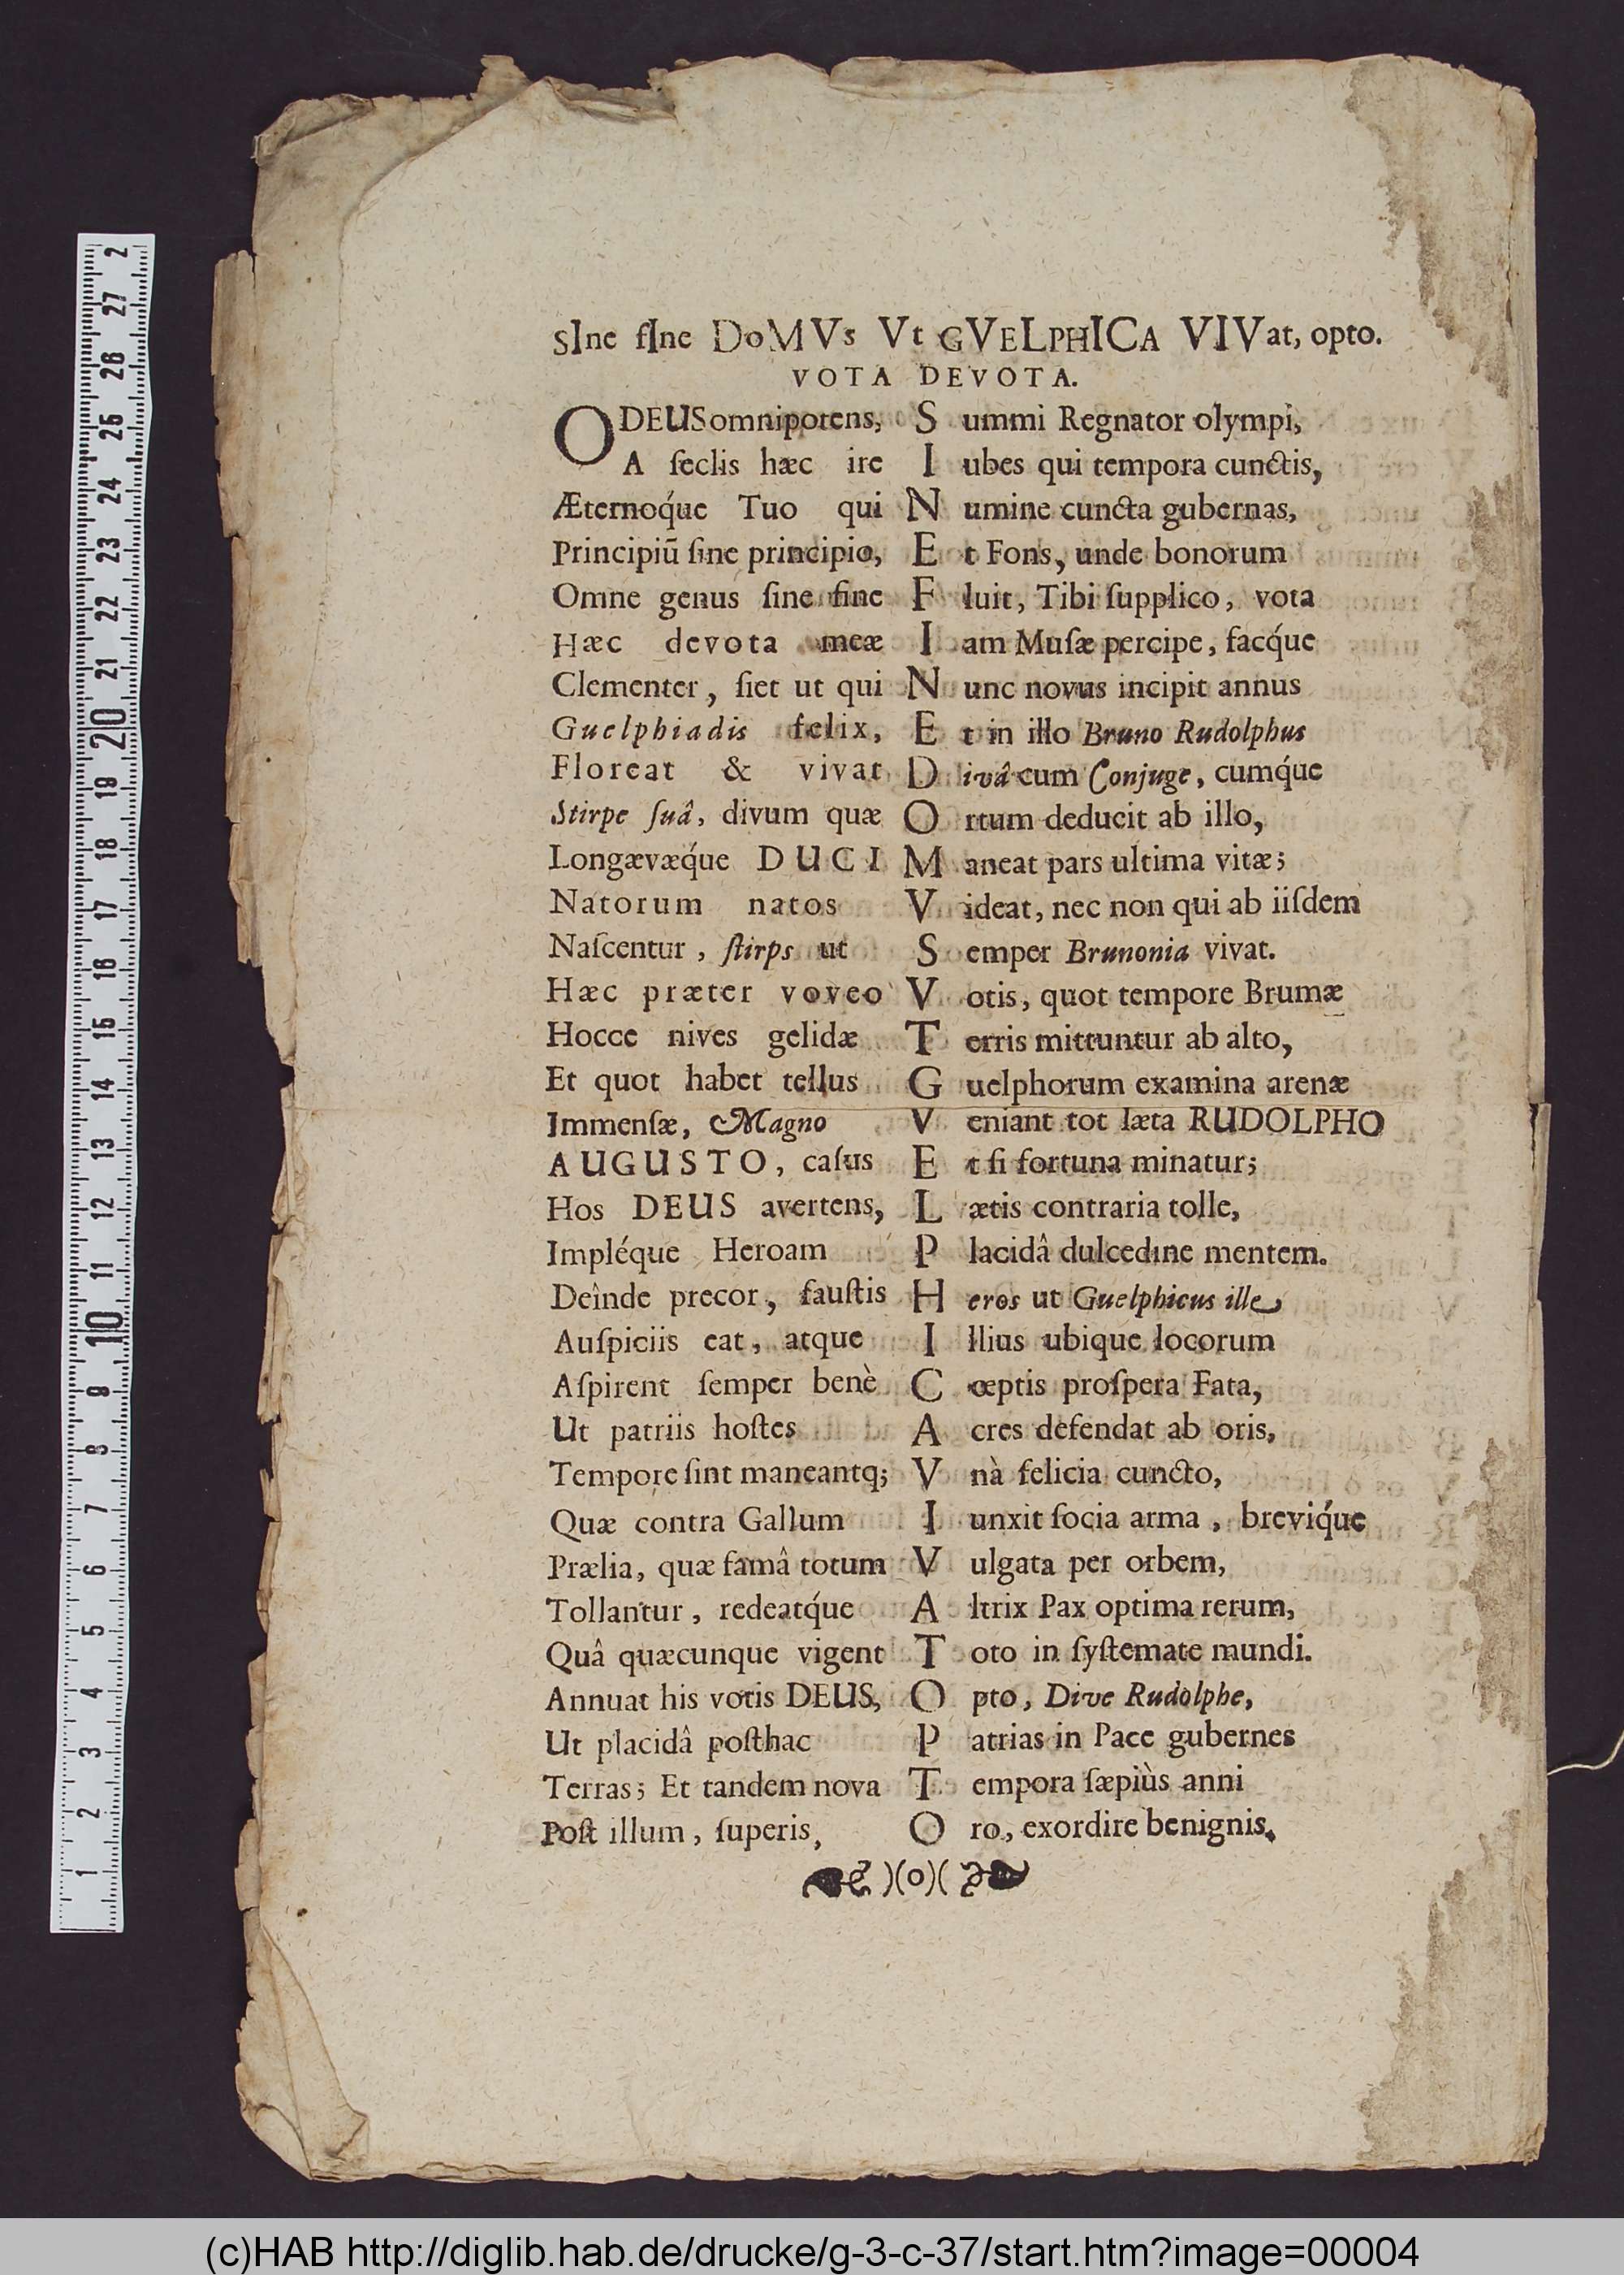 sIne fIne DoMVs Vt GVELPHICA VIVat, opto.
VOTA DEVOTA.
O DEUS omnipotens, S ummi Regnator olympi,
A ſeclis hæc ire I ubes qui tempora cunctis,
Æternoq́ue Tuo qui N umine cuncta gubernas,
Principiũ ſine principio, E t Fons, unde bonorum
Omne genus ſine fine F luit, Tibi ſupplico, vota
Hæc devota meæ I am Muſæ percipe, facq́ue
Clementer, fiet ut qui N unc novus incipit annus
Guelphiadis felix, E t in illo Bruno Rudolphus
Floreat & vivat D ivâ cum Conjuge, cumq́ue
Stirpe ſuâ, divum quæ O rtum deducit ab illo,
Longævæq́ue DUCI M aneat pars ultima vitæ;
Natorum natos V ideat, nec non qui ab iiſdem
Naſcentur, ſtirps ut S emper Brunonia vivat.
Hæc præter voveo V otis, quot tempore Brumæ
Hocce nives gelidæ T erris mittuntur ab alto,
Et quot habet tellus G uelphorum examina arenæ
Immenſæ, Magno V eniant tot læta RUDOLPHO
AUGUSTO, caſus E t ſi fortuna minatur;
Hos DEUS avertens, L ætis contraria tolle,
Impléque Heroam P lacidâ dulcedine mentem.
Deînde precor, fauſtis H eros ut Guelphicus ille
Auſpiciis eat, atque I llius ubique locorum
Aſpirent ſemper benè C œptis proſpera Fata,
Ut patriis hoſtes A cres defendat ab oris,
Tempore ſint maneantq; V nà felicia cuncto,
Quæ contra Gallum I unxit ſocia arma, breviq́ue
Prælia, quæ famâ totum V ulgata per orbem,
Tollantur, redeatq́ue A ltrix Pax optima rerum,
Quâ quæcunque vigent T oto in ſyſtemate mundi.
Annuat his votis DEUS, O pto, Dive Rudolphe,
Ut placidâ poſthac P atrias in Pace gubernes
Terras; Et tandem nova T empora ſæpiùs anni
Poſt illum, ſuperis, O ro, exordire benignis.
)(o)(
1 2 3 4 5 6 7 8 9 10 11 12 13 14 15 16 17 18 19 20 21 22 23 24 25 26 27 2
(c)HAB http://diglib.hab.de/drucke/g-3-c-37/start.htm?image=00004